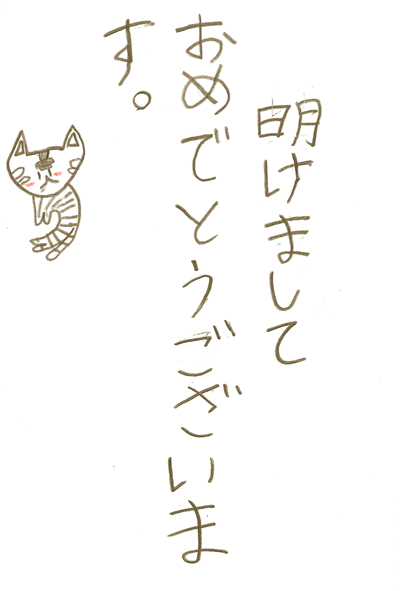 明けまして
おめでとうございま
す。